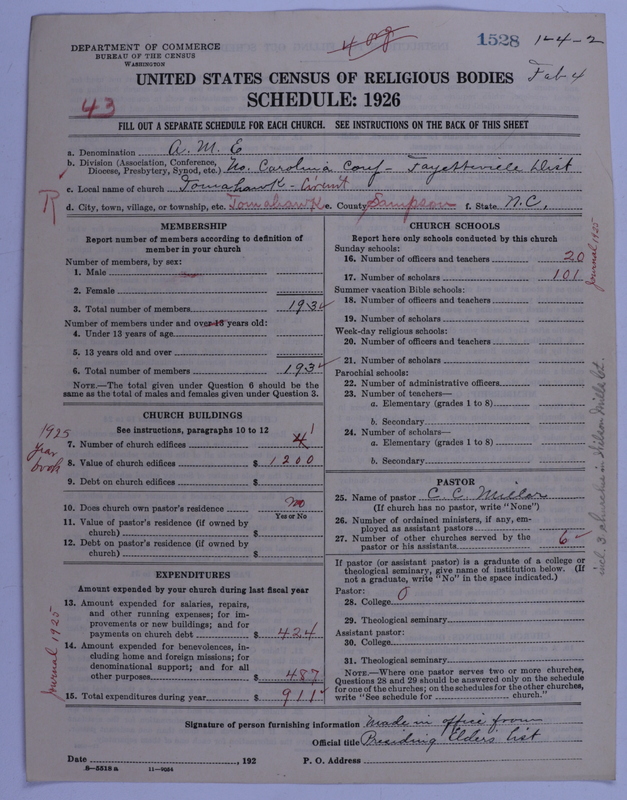 DEPARTMENT OF COMMERCE
BUREAU OF THE CENSUS
WASHINGTON
1528 1-4-2
UNITED STATES CENSUS OF RELIGIOUS BODIES
SCHEDULE: 1926
43
FILL OUT A SEPARATE SCHEDULE FOR EACH CHURCH. SEE INSTRUCTIONS ON THE BACK OF THIS SHEET
a. Denomination A. M. E
b. Division (Association, Conference, Diocese, Presbytery, Synod, etc.) No. Carolina Conf- Fayetteville Dist
c. Local name of church Tomahawk - Circuit
R
d. City, town, village, or township, etc. Tomahawk e. County Sampson f. State N.C.
MEMBERSHIP
Report number of members according to definition of
member in your church
Number of members, by sex:
1. Male
2. Female
3. Total number of members 193
Number of members under and over 13 years old:
4. Under 13 years of age
5. 13 years old and over
6. Total number of members 193
NOTE.—The total given under Question 6 should be the
same as the total of males and females given under Question 3.
CHURCH BUILDINGS
See instructions, paragraphs 10 to 12
1925
Year
book
7. Number of church edifices 4 1
8. Value of church edifices $ 1200
9. Debt on church edifices $
10. Does church own pastor's residence no
Yes or No
11. Value of pastor's residence (if owned by
church) $
12. Debt on pastor's residence (if owned by
church) $
EXPENDITURES
Amount expended by your church during last fiscal year
Journal 1925
13. Amount expended for salaries, repairs,
and other running expenses; for im-
provements or new buildings; and for
payments on church debt $ 424
14. Amount expended for benevolences, in-
cluding home and foreign missions; for
denominational support; and for all
other purposes $ 487
15. Total expenditures during year $ 911
CHURCH SCHOOLS
Report here only schools conducted by this church
Sunday schools:
16. Number of officers and teachers 20
17. Number of scholars 101
Journal 1925
Summer vacation Bible schools:
18. Number of officers and teachers
19. Number of scholars
Week-day religious schools:
20. Number of officers and teachers
21. Number of scholars
Parochial schools:
22. Number of administrative officers
23. Number of teachers—
a. Elementary (grades 1 to 8)
b. Secondary
24. Number of scholars—
a. Elementary (grades 1 to 8)
b. Secondary
incl. 3 churches in
PASTOR
25. Name of pastor C. C. Millar
(If church has no pastor, write "None")
26. Number of ordained ministers, if any, em-
ployed as assistant pastors
27. Number of other churches served by the
pastor or his assistants 6
If pastor (or assistant pastor) is a graduate of a college or
theological seminary, give name of institution below. (If
not a graduate, write "No" in the space indicated.)
Pastor:
28. College 0
29. Theological seminary
Assistant pastor:
30. College
31. Theological seminary
NOTE.—Where one pastor serves two or more churches,
Questions 28 and 29 should be answered only on the schedule
for one of the churches; on the schedules for the other churches,
write "See schedule for church."
Signature of person furnishing information Made in office from
Official title Presiding Elders list
Date , 192 P. O. Address
8—5518 a 11—9054